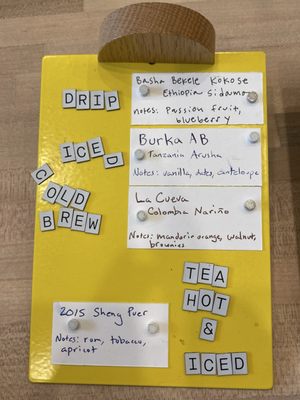 DRIP
Basha Bekele Kokose
Ethiopia Sidama
Notes: Passion fruit,
blueberry
ICED
Burka AB
Tanzania Arusha
Notes: vanilla, dates, canteloupe
COLD
BREW
La Cueva
Colombia Nariño
Notes: mandarin orange, walnut,
brownies
TEA
HOT
&
ICED
2015 Sheng Puer
Notes: rom, tobacco,
apricot